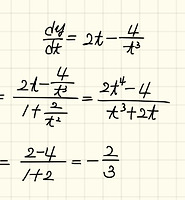 dy/dt = 2t - 4/t³
= (2t - 4/t³)/(1 + 2/t²) = (2t⁴ - 4)/(t³ + 2t)
= (2-4)/(1+2) = -2/3